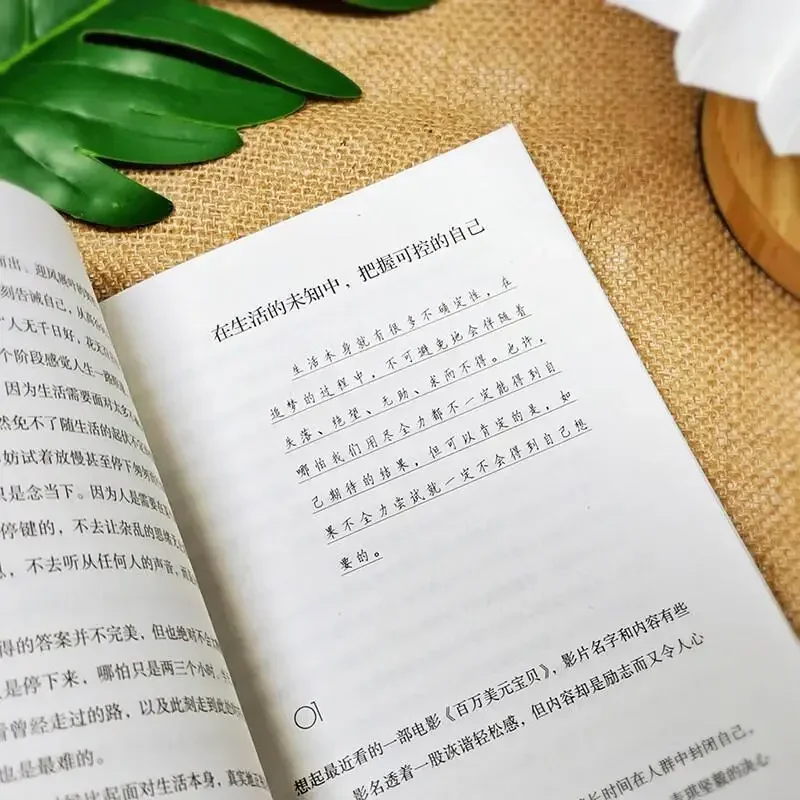 而出、迎风展叶的
刻告诫自己，从
“人无千日好，花无
个阶段感觉人生一
因为生活需要面对太多
然免不了随生活的起伏
妨试着放慢甚至停下
只是念当下。因为人是需要在
停键的，不去让杂乱的思绪
，不去听从任何人的声音，而
得的答案并不完美，但也绝对不会
是停下来，哪怕只是两三个小时。
看曾经走过的路，以及此刻走到此处
也是最难的。
比起面对生活本身，真实地
在生活的未知中，把握可控的自己
生活本身就有很多不确定性，在
追梦的过程中，不可避免地会伴随着
失落、绝望、无助、求而不得。也许，
哪怕我们用尽全力都不一定能得到自
己期待的结果，但可以肯定的是，如
果不全力尝试就一定不会得到自己想
要的。
01
想起最近看的一部电影《百万美元宝贝》，影片名字和内容有些
影名透着一股诙谐轻松感，但内容却是励志而又令人心
长时间在人群中封闭自己，
琪坚毅的决心